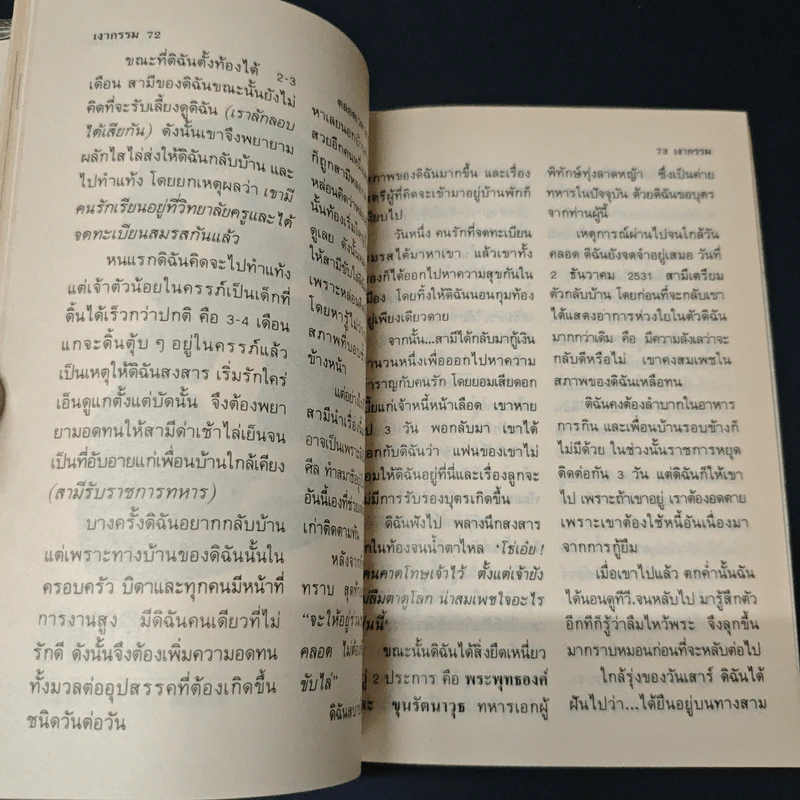 เงากรรม 72
ขณะที่ดิฉันตั้งท้องได้ 2-3
เดือน สามีของดิฉันขณะนั้นยังไม่
คิดที่จะรับเลี้ยงดูดิฉัน (เราลักลอบ
ได้เสียกัน) ดังนั้นเขาจึงพยายาม
ผลักไสไล่ส่งให้ดิฉันกลับบ้าน และ
ไปทำแท้ง โดยยกเหตุผลว่า เขามี
คนรักเรียนอยู่ที่วิทยาลัยครูและได้
จดทะเบียนสมรสกันแล้ว
หนแรกดิฉันคิดจะไปทำแท้ง
แต่เจ้าตัวน้อยในครรภ์เป็นเด็กที่
ดิ้นได้เร็วกว่าปกติ คือ 3-4 เดือน
แกจะดิ้นตุ้บ ๆ อยู่ในครรภ์แล้ว
เป็นเหตุให้ดิฉันสงสาร เริ่มรักใคร่
เอ็นดูแกตั้งแต่บัดนั้น จึงต้องพยา
ยามอดทนให้สามีด่าเช้าไล่เย็นจน
เป็นที่อับอายแก่เพื่อนบ้านใกล้เคียง
(สามีรับราชการทหาร)
บางครั้งดิฉันอยากกลับบ้าน
แต่เพราะทางบ้านของดิฉันนั้นใน
ครอบครัว บิดาและทุกคนมีหน้าที่
การงานสูง มีดิฉันคนเดียวที่ไม่
รักดี ดังนั้นจึงต้องเพิ่มความอดทน
ทั้งมวลต่ออุปสรรคที่ต้องเกิดขึ้น
ชนิดวันต่อวัน
หาเลยนอกบ้าน
สวยอีกคนหนึ่ง
ก็ถูกสามีหลอก
หล่อนคิดว่า
นั้นท้องเริ่มใหญ่
ดูเลย ดังนั้น
ให้สามีขับไล่
เพราะหล่อน
โดยหารู้ไม่ว่า
สภาพที่บอบ
ข้างหน้า
แต่อย่างไร
สามีนำเรื่อง
อาจเป็นเพราะ
ศีล ทำสมาธิอยู่
อันนี้เองที่ช่วย
เก่าติดตามทัน
หลังจาก
ทราบ สุดท้าย
“จะให้อยู่ร่วม
คลอด ไม่ต้อง
ขับไล่”
ดิฉันสบาย
73 เงากรรม
ภาพของดิฉันมากขึ้น และเรื่อง
ตรีผู้ที่คิดจะเข้ามาอยู่บ้านพักก็
งียบไป
วันหนึ่ง คนรักที่จดทะเบียน
มรสได้มาหาเขา แล้วเขาทั้ง
องก็ได้ออกไปหาความสุขกันใน
มือง โดยทิ้งให้ดิฉันนอนกุมท้อง
ยู่เพียงเดียวดาย
จากนั้น...สามีได้กลับมากู้เงิน
ำนวนหนึ่งเพื่อออกไปหาความ
ำราญกับคนรัก โดยยอมเสียดอก
บี้ยแก่เจ้าหนี้หน้าเลือด เขาหาย
ป 3 วัน พอกลับมา เขาได้
อกกับดิฉันว่า แฟนของเขาไม่
อมให้ดิฉันอยู่ที่นี่และเรื่องลูกจะ
ม่มีการรับรองบุตรเกิดขึ้น
ดิฉันฟังไป พลางนึกสงสาร
ูกในท้องจนน้ำตาไหล ‘โธ่เอ๋ย!
คนคาดโทษเจ้าไว้ ตั้งแต่เจ้ายัง
มลืมตาดูโลก น่าสมเพชใจอะไร
ปนนี้’
ขณะนั้นดิฉันได้สิ่งยึดเหนี่ยว
ู่ 2 ประการ คือ พระพุทธองค์
ละ ขุนรัตนาวุธ ทหารเอกผู้
พิทักษ์ทุ่งลาดหญ้า ซึ่งเป็นค่าย
ทหารในปัจจุบัน ด้วยดิฉันขอบุตร
จากท่านผู้นี้
เหตุการณ์ผ่านไปจนใกล้วัน
คลอด ดิฉันยังจดจำอยู่เสมอ วันที่
2 ธันวาคม 2531 สามีเตรียม
ตัวกลับบ้าน โดยก่อนที่จะกลับเขา
ได้แสดงอาการห่วงใยในตัวดิฉัน
มากกว่าเดิม คือ มีความลังเลว่าจะ
กลับดีหรือไม่ เขาคงสมเพชใน
สภาพของดิฉันเหลือทน
ดิฉันคงต้องลำบากในอาหาร
การกิน และเพื่อนบ้านรอบข้างก็
ไม่มีด้วย ในช่วงนั้นราชการหยุด
ติดต่อกัน 3 วัน แต่ดิฉันก็ให้เขา
ไป เพราะถ้าเขาอยู่ เราต้องอดตาย
เพราะเขาต้องใช้หนี้อันเนื่องมา
จากการกู้ยืม
เมื่อเขาไปแล้ว ตกค่ำนั้นฉัน
ได้นอนดูทีวี.จนหลับไป มารู้สึกตัว
อีกทีก็รู้ว่าลืมไหว้พระ จึงลุกขึ้น
มากราบหมอนก่อนที่จะหลับต่อไป
ใกล้รุ่งของวันเสาร์ ดิฉันได้
ฝันไปว่า...ได้ยืนอยู่บนทางสาม